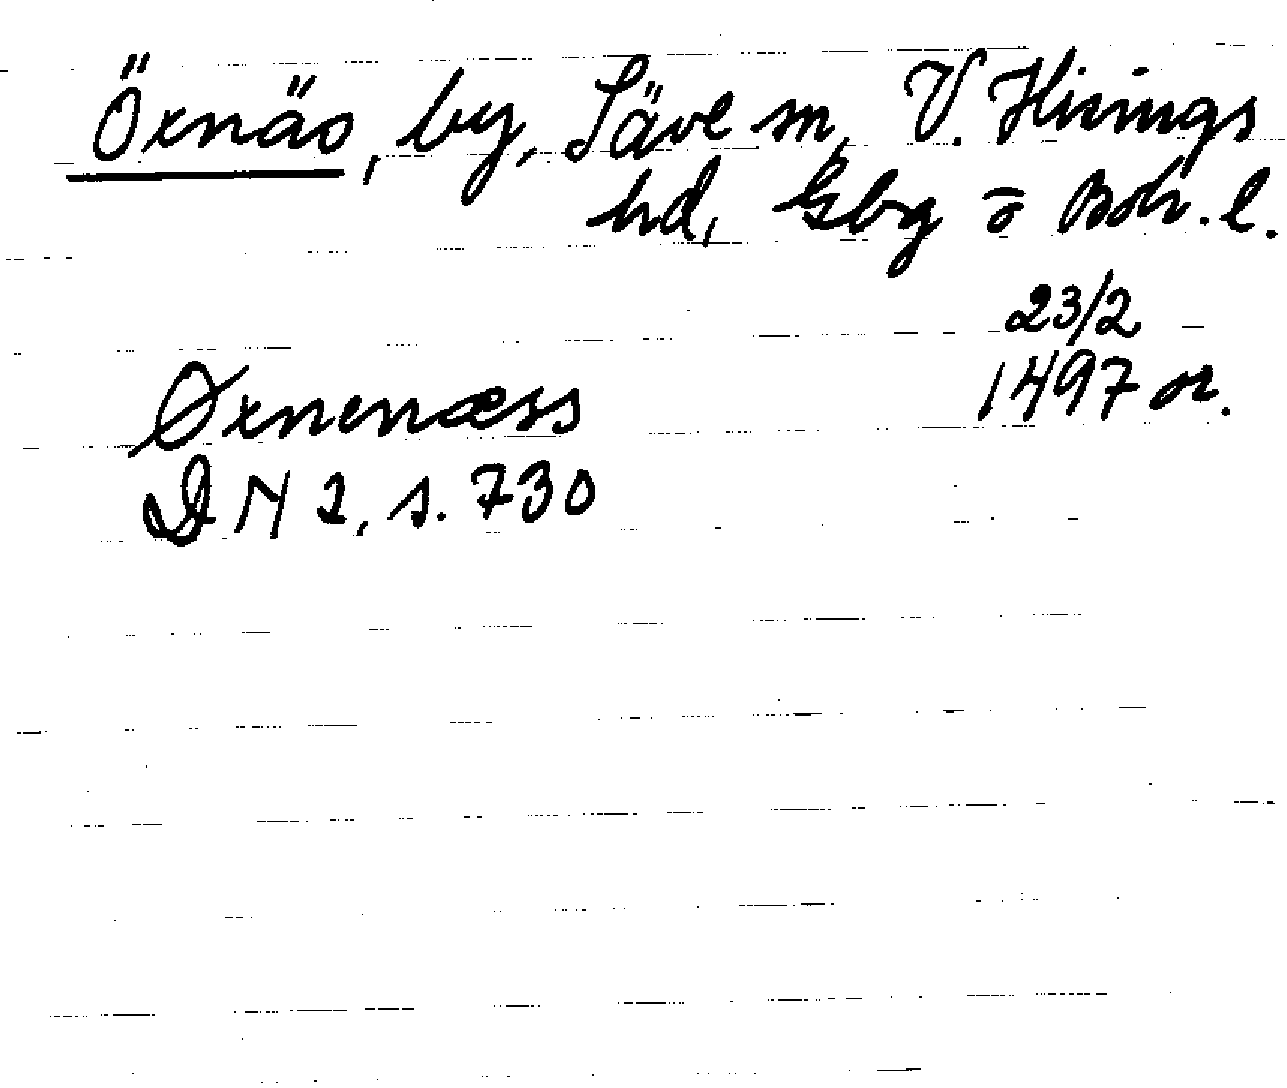 Öxnäs, by, Säve sn, V. Hisings
hd, Gbg o Boh. l.
23/2
Øxnenæss 1497 or.
DN 2, s. 730